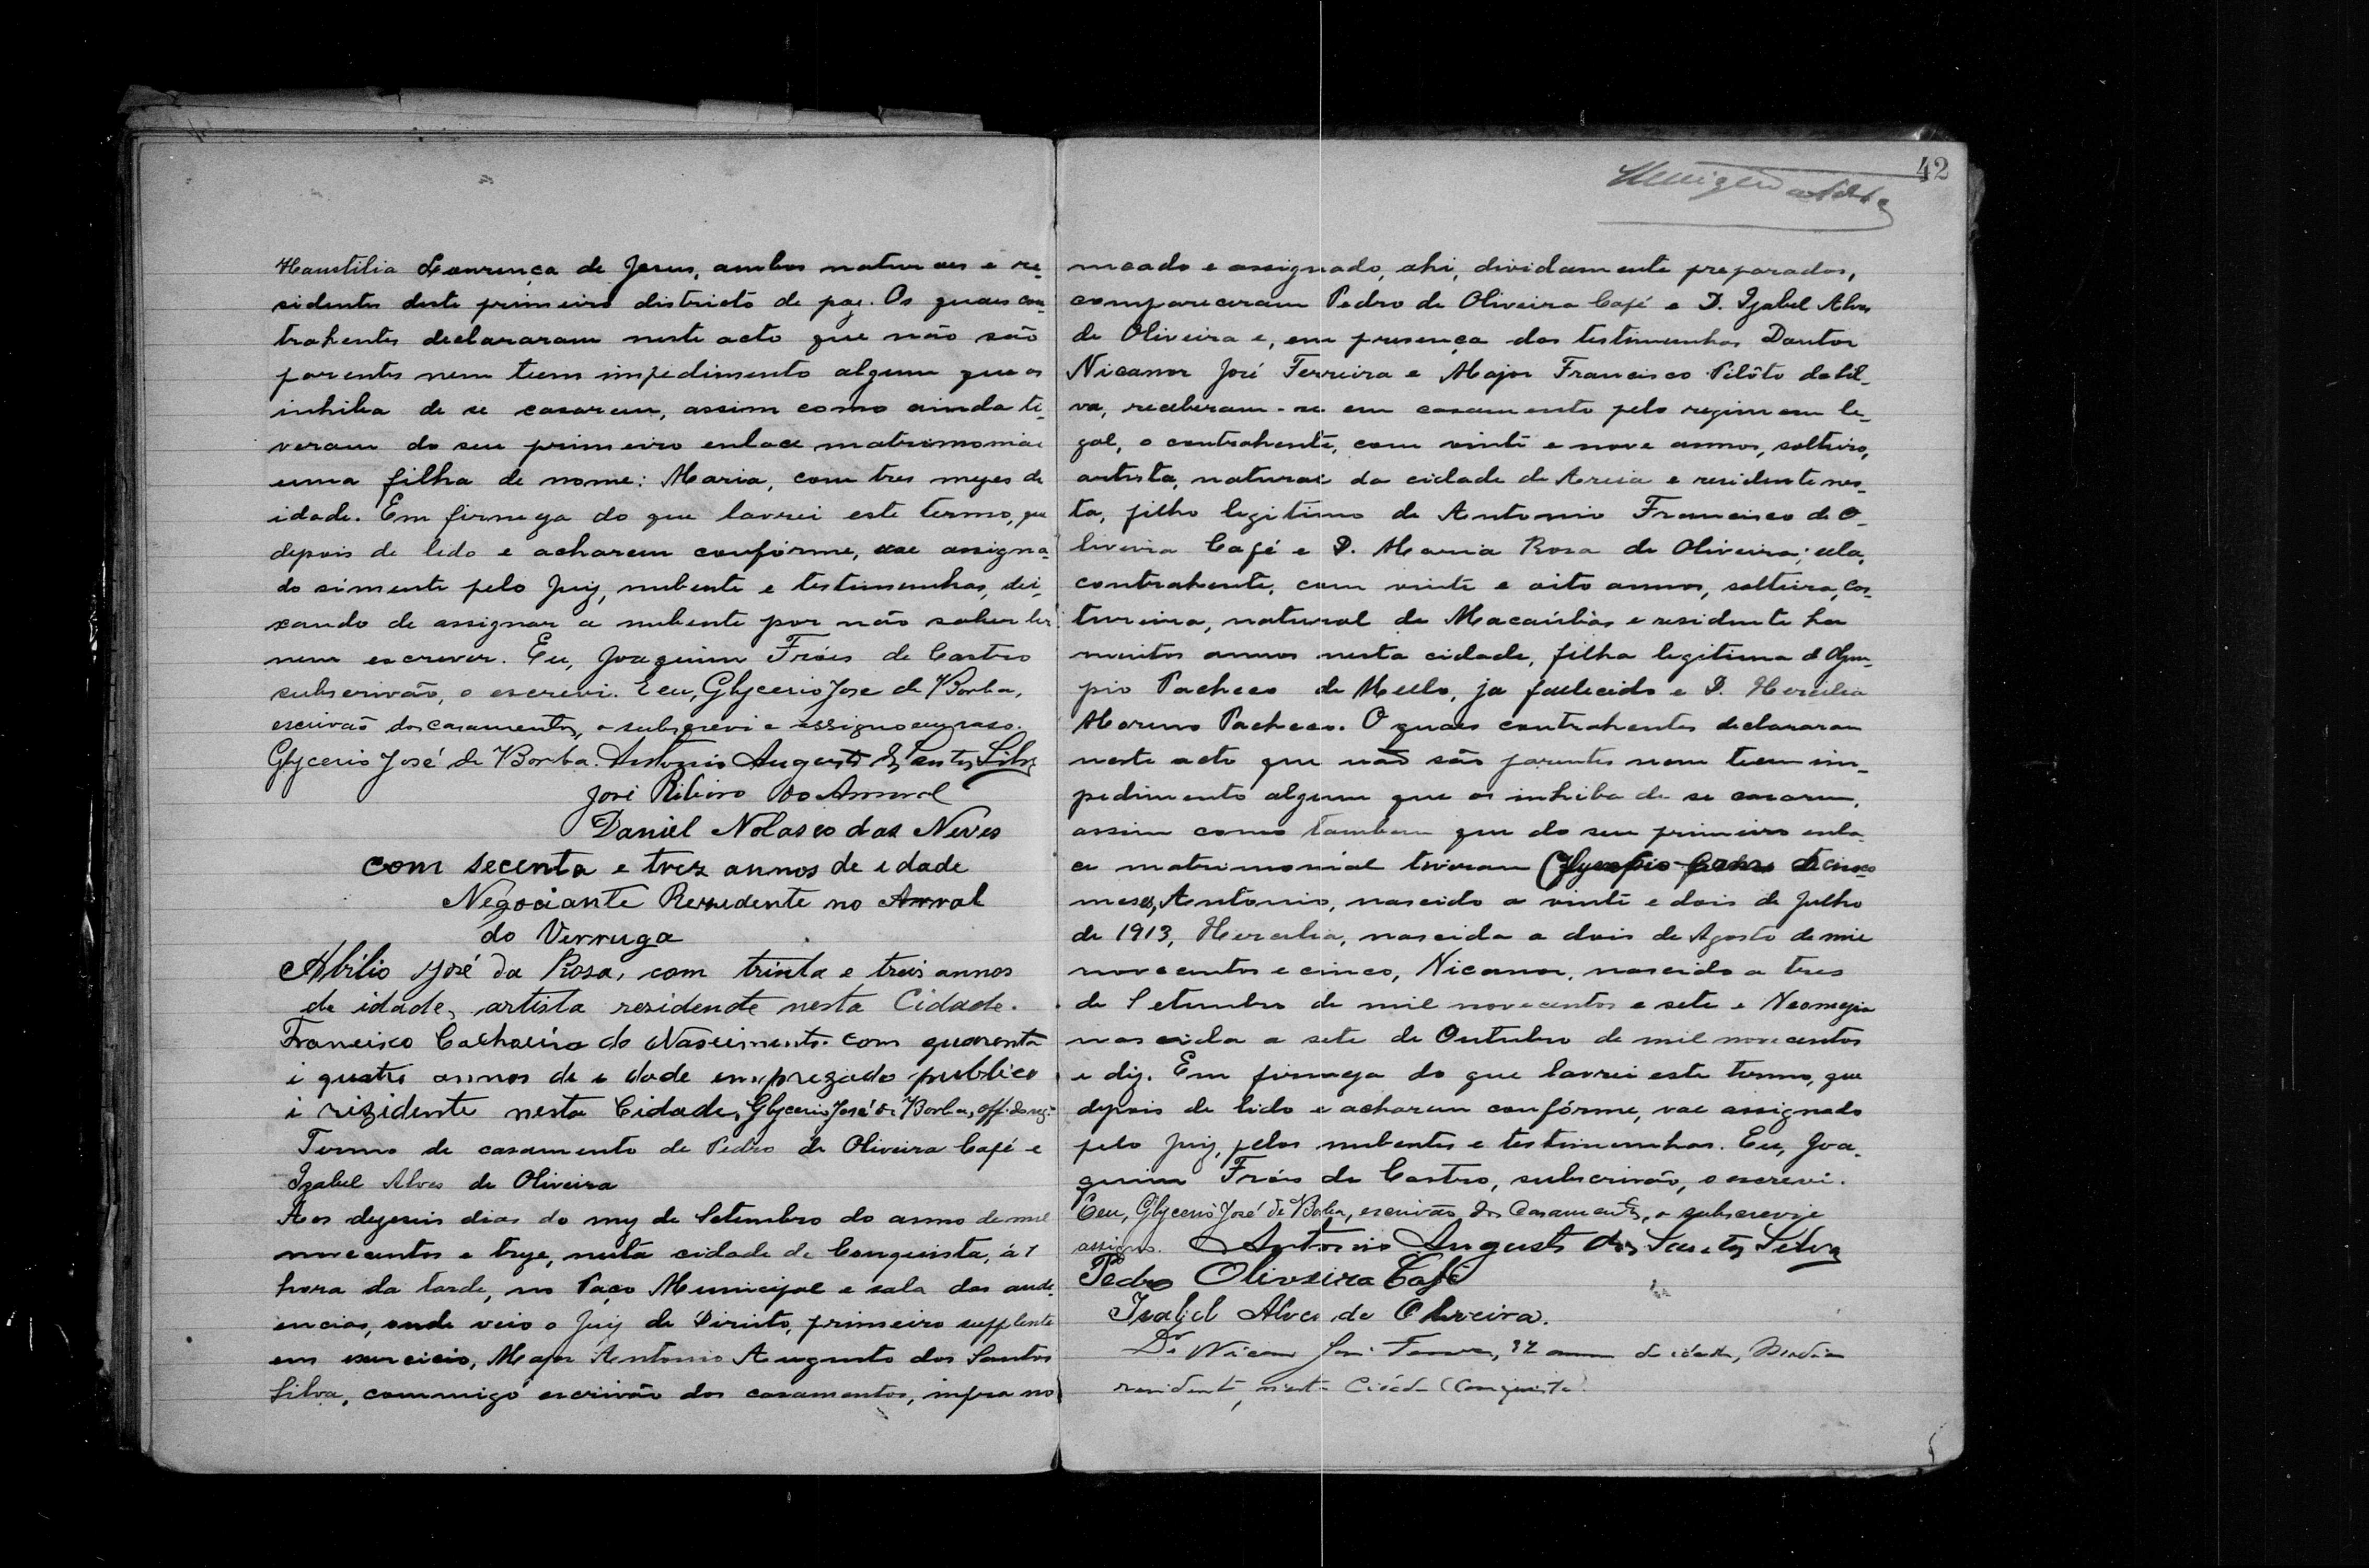 Haustilia Lourença de Jesus, ambos naturaes e re-
sidentes deste primeiro districto de paz. Os quaes con-
trahentes declararam neste acto que não são
parentes nem teem impedimento algum que os
inhiba de se casarem, assim como ainda ti-
veram do seu primeiro enlace matrimonial
uma filha de nome: Maria, com tres mezes de
idade. Em firmeza do que lavrei este termo, que
depois de lido e acharem confórme, vae assigna-
do sómente pelo Juiz, nubente e testimunhas, dei-
xando de assignar a nubente por não saber ler
nem escrever. Eu, Joaquim Fróes de Castro
subscrivão, o escrevi. E eu, Glycerio José de Borba,
escrivão dos casamentos, o subscrevi e assigno em raso.
Glycerio José de Borba. Antonio Augusto dos Santos Silva
José Ribeiro do Amaral
Daniel Nolasco das Neves
com secenta e trez annos de idade
Negociante Rezidente no Arraal
do Verruga
Abilio José da Rosa, com trinta e treis annos
de idade, artista residende nesta Cidade.
Francisco Cachoeira do Nascimento com quarenta
i quatro annos de idade empregado publico
i rizidente nesta Cidade, Glycerio José de Borba, off. do reg.
Termo de casamento de Pedro de Oliveira Café e
Izabel Alves de Oliveira
Aos dezeseis dias do mez de Setembro do anno de mil
novecentos e treze, nesta cidade de Conquista, á 1
hora da tarde, no Paço Municipal e sala das audi-
encias, onde veio o Juiz de Direito, primeiro supplente
em exercicio, Major Antonio Augusto dos Santos
Silva, commigo escrivão dos casamentos, infra no
42
meado e assignado, ahi, dividamente preparados,
compareceram Pedro de Oliveira Café e D. Izabel Alves
de Oliveira e, em presença das testimunhas Doutor
Nicanor José Ferreira e Major Francisco Pilôto da Sil-
va, receberam-se em casamento pelo regimem le-
gal, o contrahente, com vinte e nove annos, solteiro,
artista, natural da cidade de Areia e residente nes-
ta, filho legitimo de Antonio Francisco de O-
liveira Café e D. Maria Rosa de Oliveira; ella,
contrahente, com vinte e oito annos, solteira, cos-
tureira, natural de Macaúbas e residente ha
muitos annos nesta cidade, filha legitima de Olym-
pio Pacheco de Mello, ja fallecido e D. Hercilia
Moreno Pacheco. O quaes contrahentes declararam
neste acto que não são parentes nem teem im-
pedimento algum que os inhiba de se casarem,
assim como tambem que do seu primeiro enla-
ce matrimonial tiveram Olympio de cinco
meses, Antonio, nascido a vinte e dois de Julho
de 1913, Hercilia, nascida a dois de Agosto de mil
novecentos e cinco, Nicanor, nascido a tres
de Setembro de mil novecentos e sete e
nascida a sete de Outubro de mil novecentos
e diz. Em firmeza do que lavrei este termo, que
depois de lido e acharem confórme, vae assignado
pelo Juiz, pelos nubentes e testimunhas. Eu, Joa-
quim Fróes de Castro, subscrivão, o escrevi.
E eu, Glycerio José de Borba, escrivão dos Casamentos, o subscrevi e
assigno. Antonio Augusto dos Santos Silva
Pedro Oliveira Café
Isabel Alves de Oliveira.
Dr. Nicanor José Ferreira, 32 annos de idade, Medico
residente, nesta Cidade (Conquista)